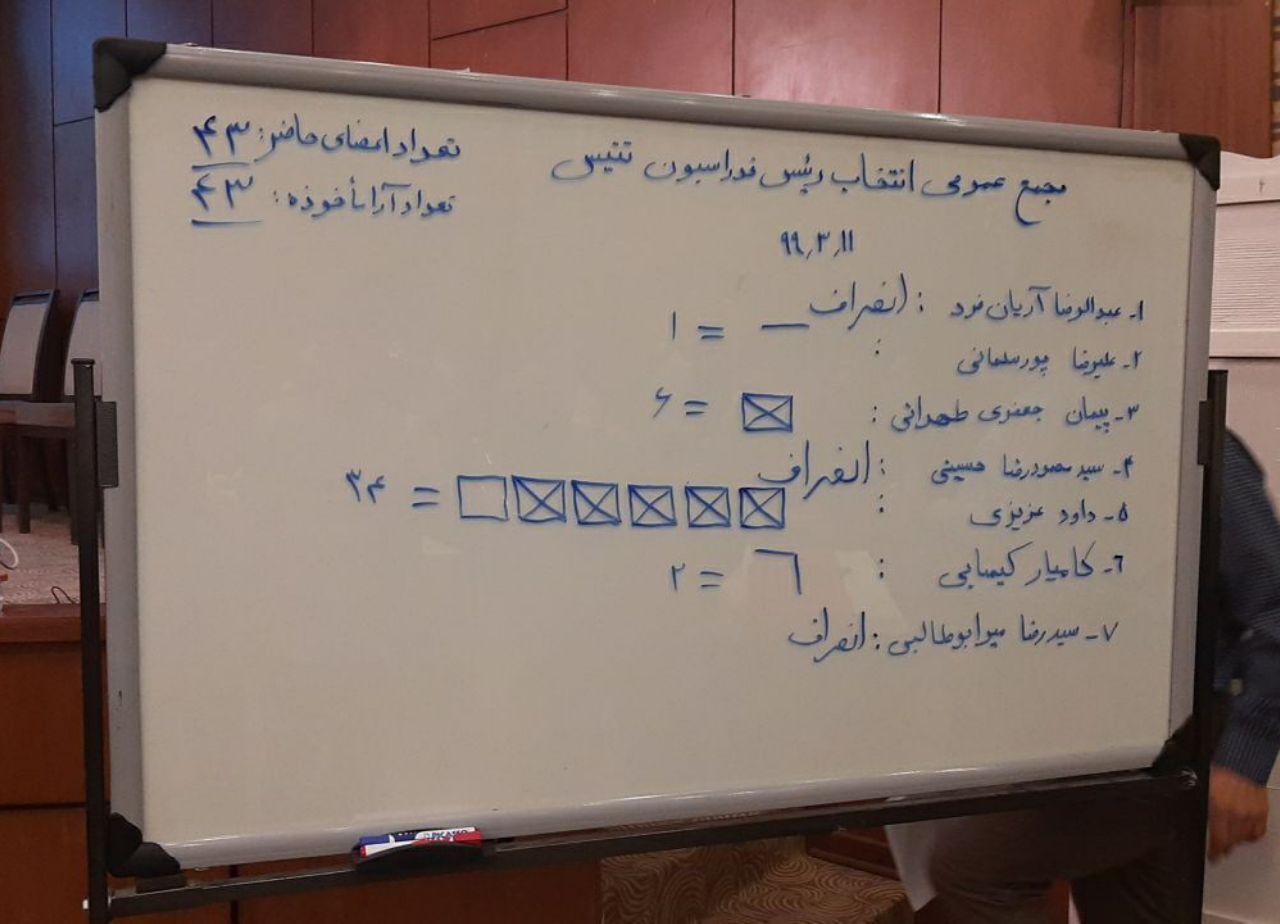 مجمع عمومی انتخاب رئیس فدراسیون تنیس
۹۹,۳,۱۱
تعداد اعضای حاضر: ۴۳
تعداد آرا مأخوذه: ۴۳
۱- عبدالرضا آریان فرد : انصراف
۲- علیرضا پورسلمانی : = ۱
۳- پیمان جعفری طهرانی : = ۶
۴- سید محمودرضا حسینی : انصراف
۵- داود عزیزی : = ۳۴
۶- کامیار کیمیایی : = ۲
۷- سیدرضا میرابوطالبی : انصراف